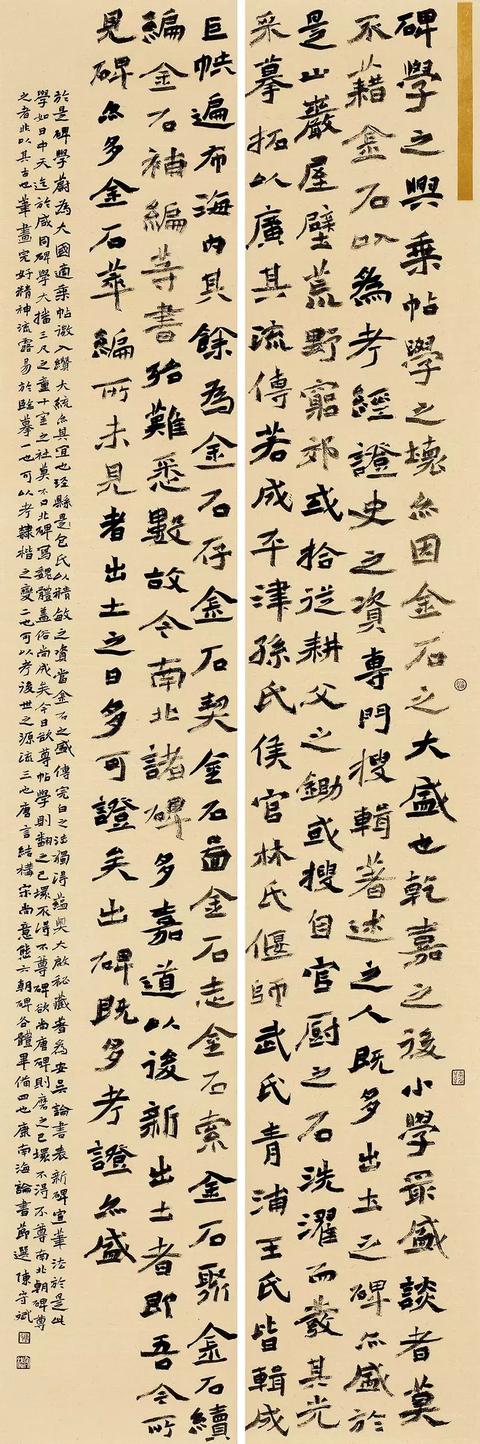 碑學之興乘帖學之壞亦因金石之大盛也乾嘉之後小學最盛談者莫
不藉金石以為考經證史之資專門搜輯著述之人既多出土之碑亦盛於
是山巖屋壁荒野窮郊或拾從耕父之鋤或搜自官厨之石洗濯而發其光
采摹拓以廣其流傳若成平津孫氏侯官林氏偃師武氏青浦王氏皆輯成
巨帙遍布海内其餘為金石存金石契金石啚金石志金石索金石聚金石續
編金石補編等書殆難悉數故今南北諸碑多嘉道以後新出土者即吾今所
見碑亦多金石萃編所未見者出土之日多可證矣出碑既多考證亦盛
於是碑學蔚為大國適乘帖微入纘大統亦其宜也涇縣是包氏以精敏之資當金石之盛傳完白之法獨得蘊奧大啟秘藏著為安吳論書表新碑宣筆法於是此
學如日中天迄於咸同碑學大播三尺之童十室之社莫不口北碑寫魏體蓋俗尚成矣今日欲尊帖學則翻之已壞不得不尊碑欲尚唐碑則磨之已壞不得不尊南北朝碑尊
之者非以其古也筆畫完好精神流露易於臨摹一也可以考隸楷之變二也可以考後世之源流三也唐言結構宋尚意態六朝碑各體畢備四也康南海論書節選陳守斌